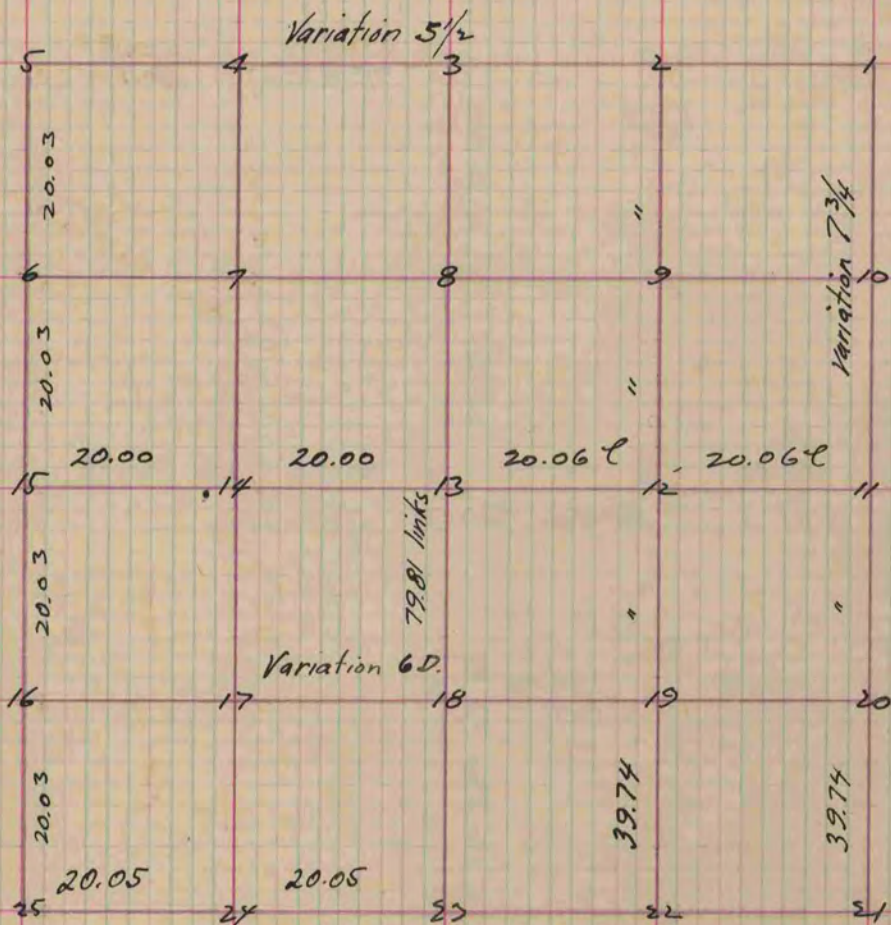 Variation 5 1/2
5 4 3 2 1
20.03
"
Variation 7 3/4
6 7 8 9 10
20.03
"
20.00 20.00 20.06 l 20.06 l
15 14 13 12 11
79.81 links
20.03
" "
Variation 6 D.
16 17 18 19 20
20.03
39.74 39.74
20.05 20.05
25 24 23 22 21